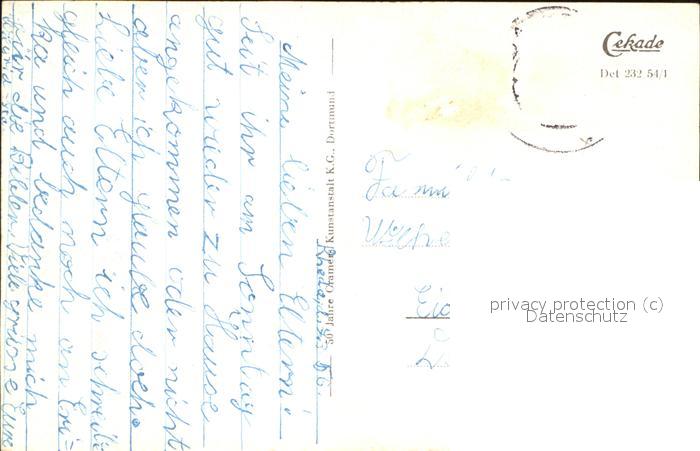 Cekade
Det 232 54/1
50 Jahre Cramers Kunstanstalt K.G., Dortmund
Meine lieben Eltern!
Seit ihr am Sonntag
gut wieder zu Hause
angekommen oder nicht
aber ich glaube doch.
Liebe Eltern ich schreibe
gleich auch noch an Eri=
ka und bedanke mich
für die Bilder Viele grüsse Eure
Fami
privacy protection (c)
Datenschutz